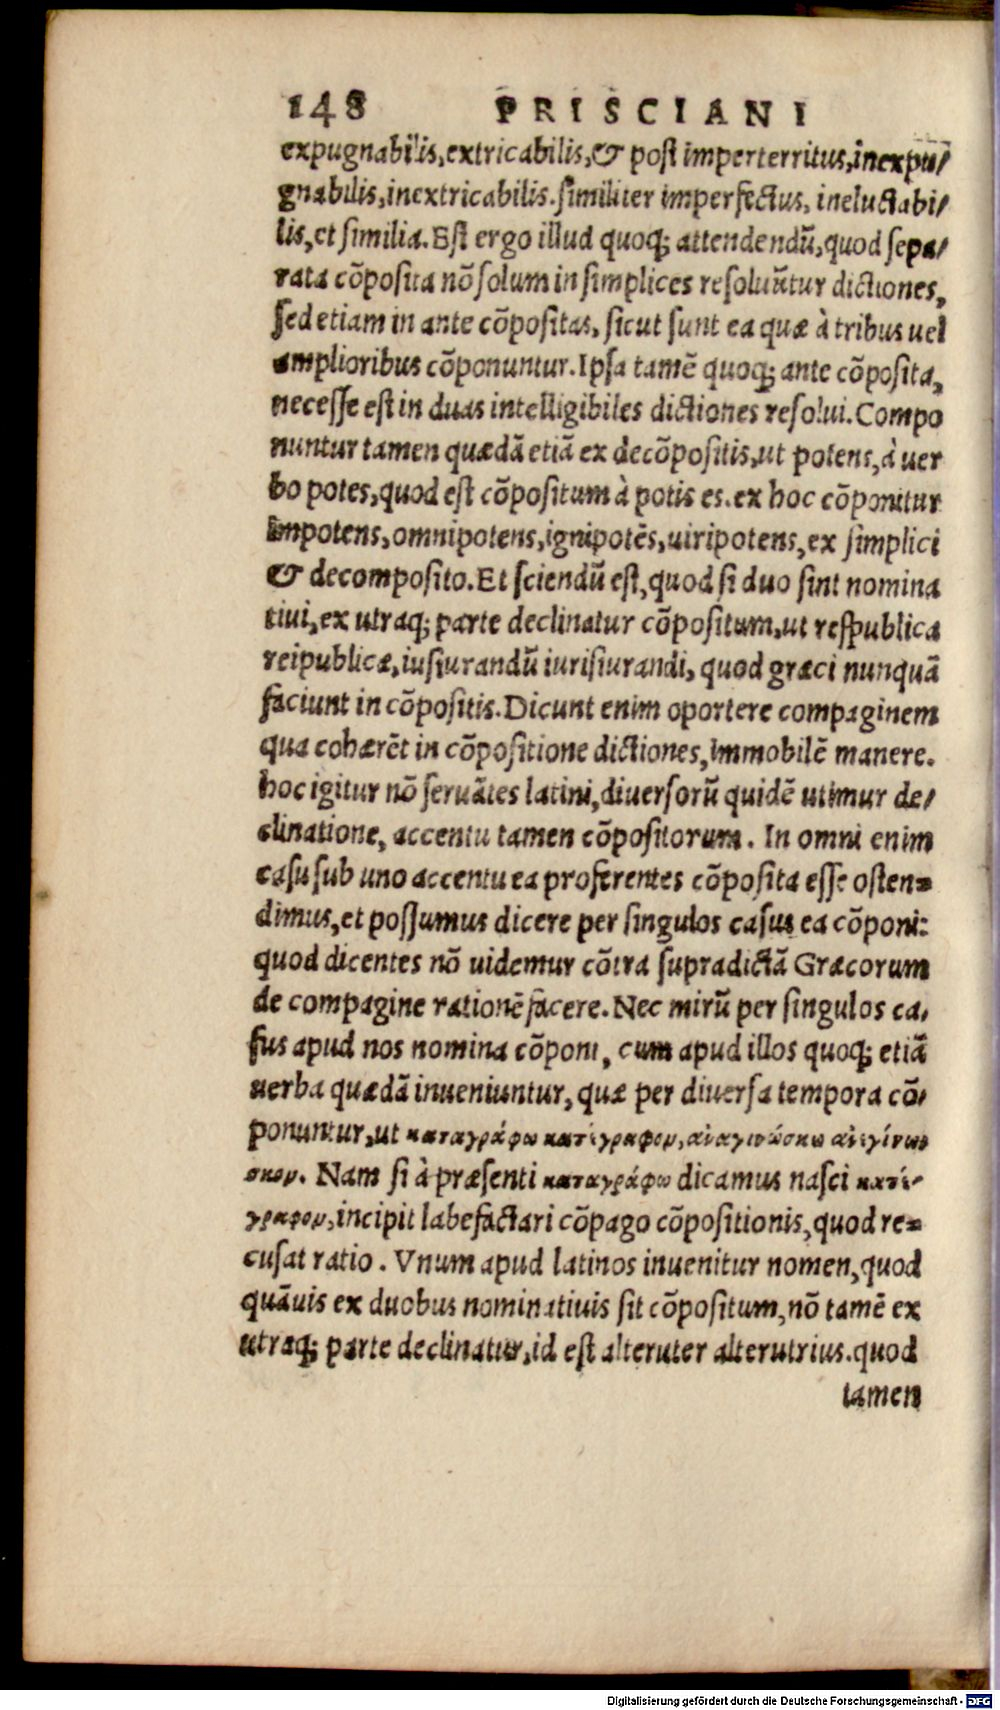 148 PRISCIANI
expugnabilis, extricabilis, & post imperterritus, inexpu/
gnabilis, inextricabilis. similiter imperfectus, ineluctabi/
lis, et similia. Est ergo illud quoq; attendendū, quod sepa/
rata cōposita nō solum in simplices resoluūtur dictiones,
sed etiam in ante cōpositas, sicut sunt ea quæ à tribus uel
amplioribus cōponuntur. Ipsa tamē quoq; ante cōposita,
necesse est in duas intelligibiles dictiones resolui. Compo
nuntur tamen quædā etiā ex decōpositis, ut potens, à uer
bo potes, quod est cōpositum à potis es. ex hoc cōponitur
impotens, omnipotens, ignipotēs, uiripotens, ex simplici
& decomposito. Et sciendū est, quod si duo sint nomina
tiui, ex utraq; parte declinatur cōpositum, ut respublica
reipublicæ, iusiurandū iurisiurandi, quod græci nunquā
faciunt in cōpositis. Dicunt enim oportere compaginem
qua cohærēt in cōpositione dictiones, immobilē manere.
hoc igitur nō seruātes latini, diuersorū quidē utimur de/
clinatione, accentu tamen cōpositorum. In omni enim
casu sub uno accentu ea proferentes cōposita esse osten=
dimus, et possumus dicere per singulos casus ea cōponi:
quod dicentes nō uidemur cōtra supradictā Græcorum
de compagine rationē facere. Nec mirū per singulos ca/
sus apud nos nomina cōponi, cum apud illos quoq; etiā
uerba quædā inueniuntur, quæ per diuersa tempora cō/
ponuntur, ut καταγράφω κατέγραφον, ἀναγινώσκω ἀνεγίνω
σκον. Nam si à præsenti καταγράφω dicamus nasci κατέ-
γραφον, incipit labefactari cōpago cōpositionis, quod re=
cusat ratio. Vnum apud latinos inuenitur nomen, quod
quāuis ex duobus nominatiuis sit cōpositum, nō tamē ex
utraq; parte declinatur, id est alteruter alterutrius. quod
tamen
Digitalisierung gefördert durch die Deutsche Forschungsgemeinschaft - DFG